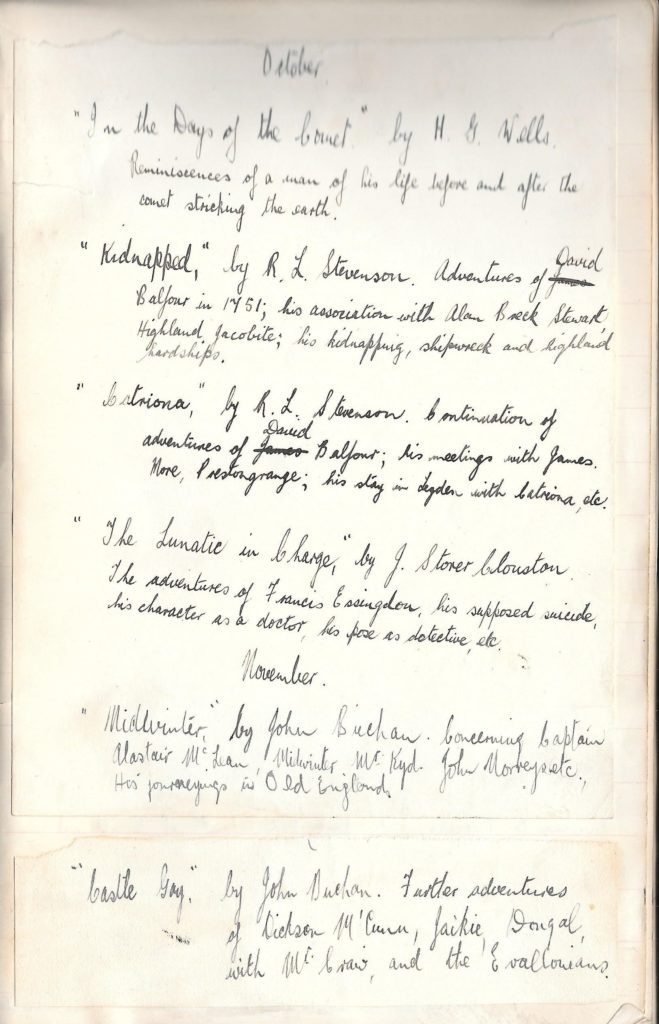 October.
"In the Days of the Comet" by H. G. Wells.
Reminiscences of a man of his life before and after the
comet stricking the earth.
"Kidnapped," by R. L. Stevenson. Adventures of James David
Balfour in 1751; his association with Alan Breck Stewart,
Highland Jacobite; his kidnapping, shipwreck and highland
hardships.
"Catriona," by R. L. Stevenson. Continuation of
adventures of James David Balfour; his meetings with James.
More, Prestongrange; his stay in Leyden with Catriona, etc.
"The Lunatic in Charge," by J. Storer Clouston.
The adventures of Francis Essingdon, his supposed suicide,
his character as a doctor, his pose as detective, etc.
November.
"Midwinter," by John Buchan. Concerning Captain
Alastair McLean, Midwinter, Mr. Kyd. John Norreys etc.,
His journeyings in Old England.
"Castle Gay." by John Buchan. Further adventures
of Dickson M'Cunn, Jaikie, Dougal,
with Mr. Craw, and the Evallonians.